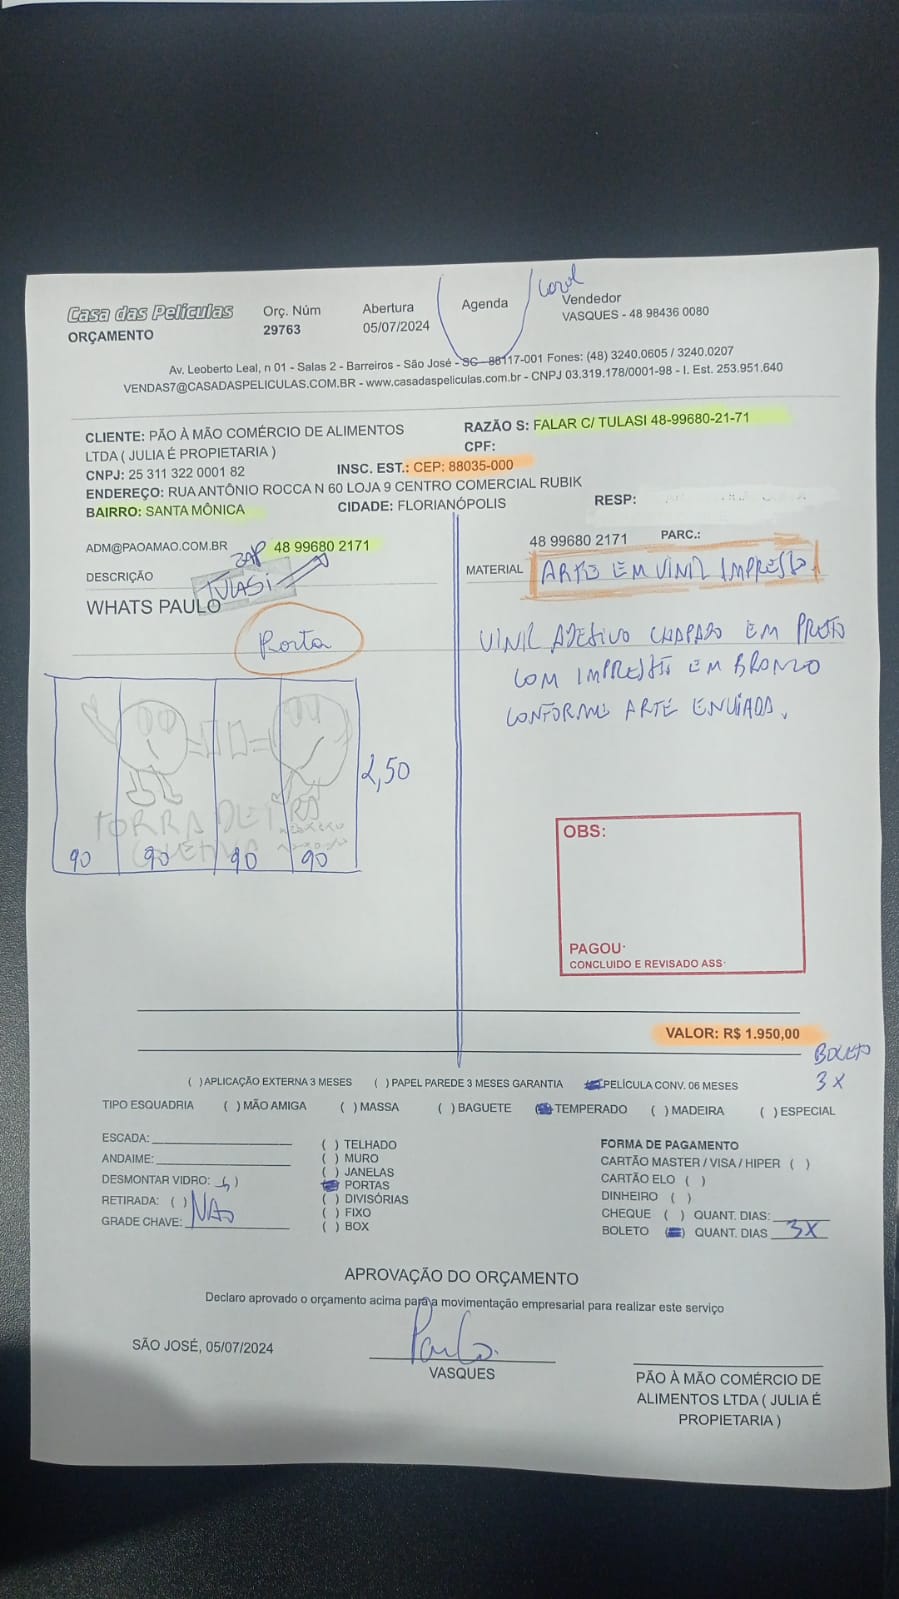 Casa das Películas
ORÇAMENTO
Orç. Núm
29763
Abertura
05/07/2024
Agenda
Carol
Vendedor
VASQUES - 48 98436 0080
Av. Leoberto Leal, n 01 - Salas 2 - Barreiros - São José - SC - 88117-001 Fones: (48) 3240.0605 / 3240.0207
VENDAS7@CASADASPELICULAS.COM.BR - www.casadaspeliculas.com.br - CNPJ 03.319.178/0001-98 - I. Est. 253.951.640
CLIENTE: PÃO À MÃO COMÉRCIO DE ALIMENTOS
LTDA ( JULIA É PROPIETARIA )
RAZÃO S: FALAR C/ TULASI 48-99680-21-71
CPF:
CNPJ: 25 311 322 0001 82
INSC. EST.: CEP: 88035-000
ENDEREÇO: RUA ANTÔNIO ROCCA N 60 LOJA 9 CENTRO COMERCIAL RUBIK
BAIRRO: SANTA MÔNICA
CIDADE: FLORIANÓPOLIS
RESP:
ADM@PAOAMAO.COM.BR
ZAP
48 99680 2171
48 99680 2171
PARC.:
DESCRIÇÃO
TULASI
WHATS PAULO
MATERIAL
ARTE EM VINIL IMPRESSO.
Porta
VINIL ADESIVO CHAPADO EM PRETO
COM IMPRESSÃO EM BRONZO
CONFORME ARTE ENVIADA.
2,50
TORRADEIRA
90
90
90
90
OBS:
PAGOU:
CONCLUIDO E REVISADO ASS:
VALOR: R$ 1.950,00
BOLETO
3X
( ) APLICAÇÃO EXTERNA 3 MESES ( ) PAPEL PAREDE 3 MESES GARANTIA PELÍCULA CONV. 06 MESES
TIPO ESQUADRIA ( ) MÃO AMIGA ( ) MASSA ( ) BAGUETE TEMPERADO ( ) MADEIRA ( ) ESPECIAL
ESCADA:
ANDAIME:
DESMONTAR VIDRO: )
RETIRADA: ( )
GRADE CHAVE:
NÃO
( ) TELHADO
( ) MURO
( ) JANELAS
PORTAS
( ) DIVISÓRIAS
( ) FIXO
( ) BOX
FORMA DE PAGAMENTO
CARTÃO MASTER / VISA / HIPER ( )
CARTÃO ELO ( )
DINHEIRO ( )
CHEQUE ( ) QUANT. DIAS:
BOLETO QUANT. DIAS 3X
APROVAÇÃO DO ORÇAMENTO
Declaro aprovado o orçamento acima para a movimentação empresarial para realizar este serviço
SÃO JOSÉ, 05/07/2024
Paulo
VASQUES
PÃO À MÃO COMÉRCIO DE
ALIMENTOS LTDA ( JULIA É
PROPIETARIA )